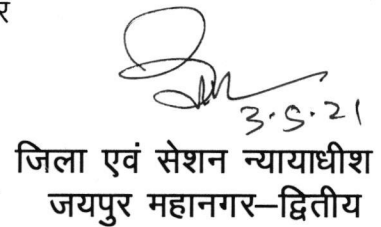 र
3.5.21
जिला एवं सेशन न्यायाधीश
जयपुर महानगर–द्वितीय